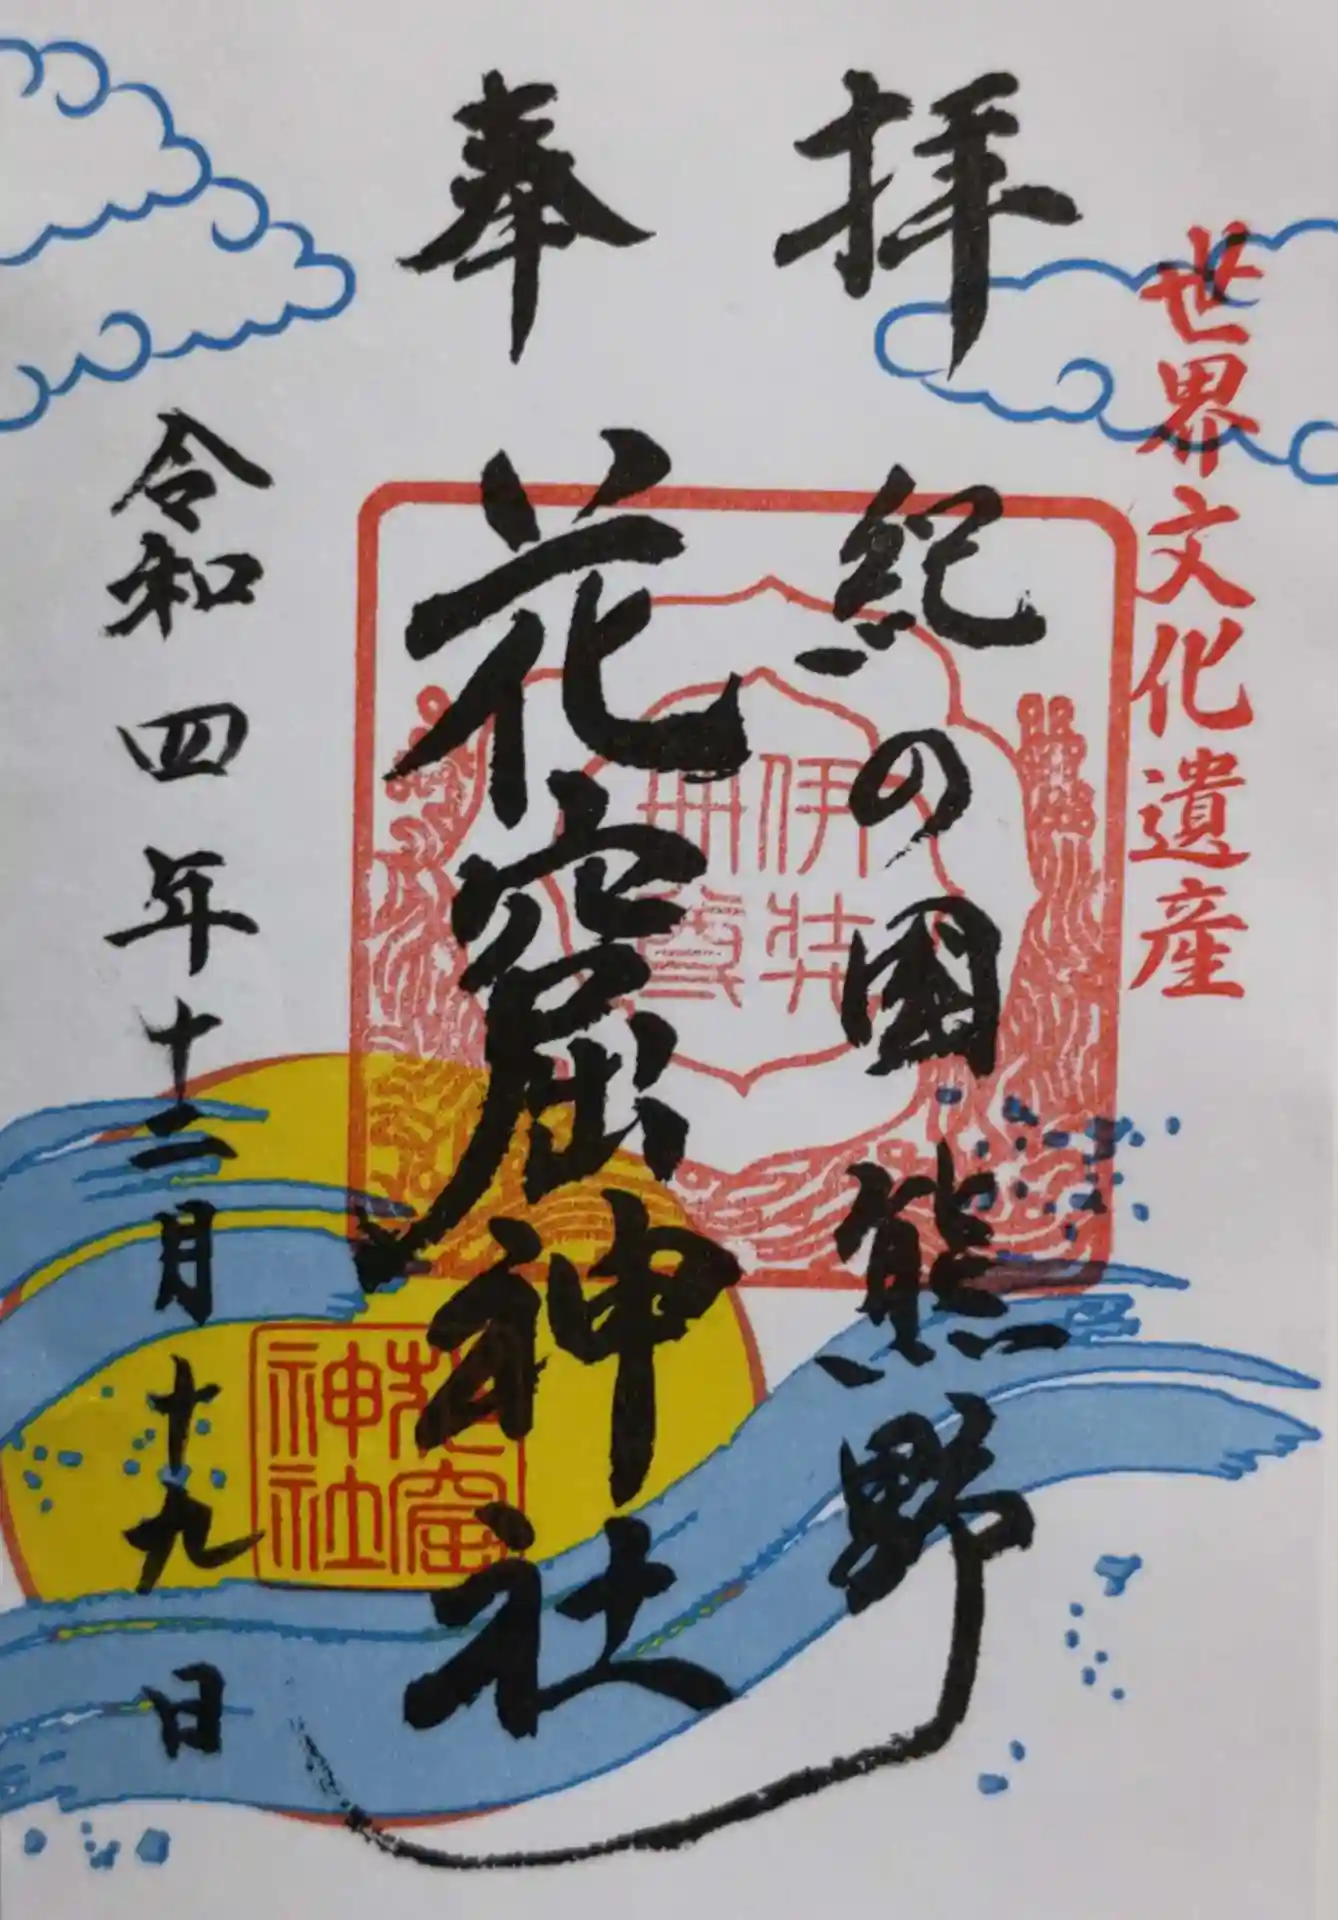 世界文化遺産
奉拝
紀の国熊野
花窟神社
令和四年十二月十九日
伊弉
冊尊
花窟
神社